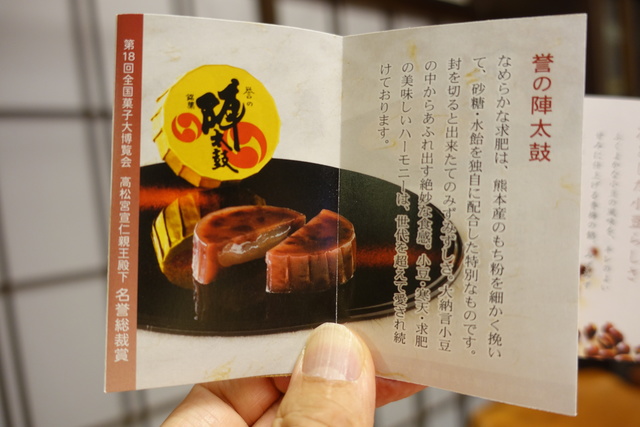 誉の陣太鼓
なめらかな求肥は、熊本産のもち粉を細かく挽い
て、砂糖・水飴を独自に配合した特別なものです。
封を切ると出来たてのみずみずしさ、大納言小豆
の中からあふれ出す絶妙な食感。小豆・寒天・求肥
の美味しいハーモニーは、世代を超えて愛され続
けております。
誉の
陣太鼓
銘菓
第18回全国菓子大博覧会 高松宮宣仁親王殿下 名誉総裁賞